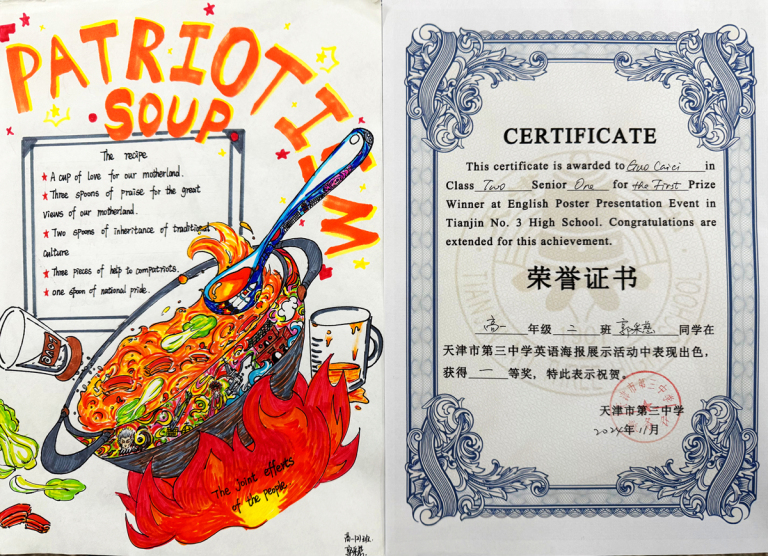 PATRIOTISM
SOUP
The recipe
A cup of love for our motherland.
Three spoons of praise for the great
views of our motherland.
Two spoons of inheritance of traditional
culture
Three pieces of help to compatriots.
one spoon of national pride.
LOVE
The joint efforts
of the people
CERTIFICATE
This certificate is awarded to Guo Caici in
Class Two Senior One for the First Prize
Winner at English Poster Presentation Event in
Tianjin No. 3 High School. Congratulations are
extended for this achievement.
荣誉证书
高一 年级 二 班 同学在
天津市第三中学英语海报展示活动中表现出色，
获得 一 等奖，特此表示祝贺。
天津市第三中学
2024年11月